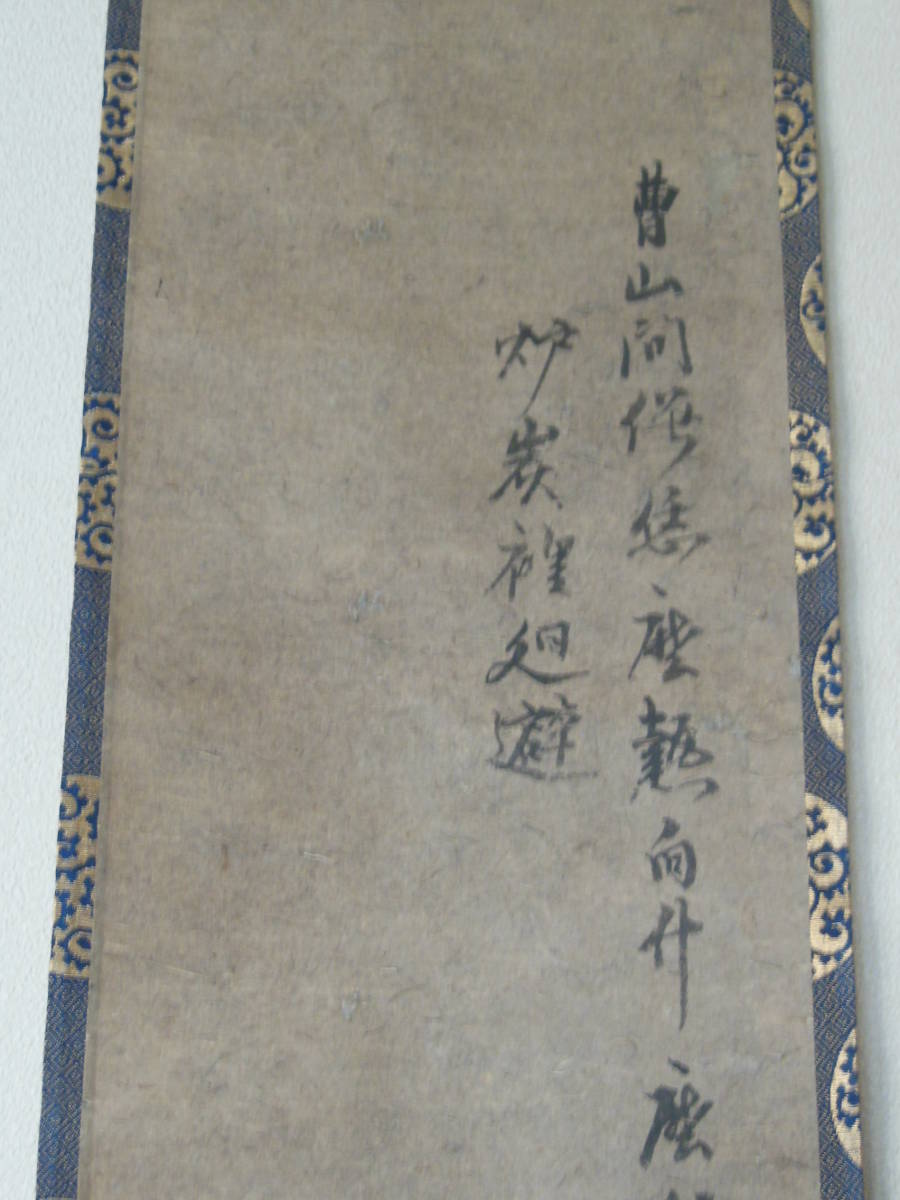 曹山問僧恁麼熱向什麼
炉炭裡廻避